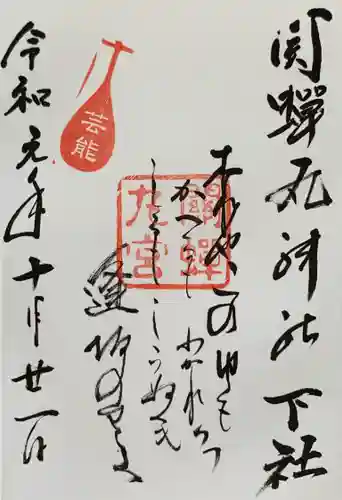 関蝉丸神社下社
これやこの行も
かへるも わかれつつ
しるもしらぬも
逢坂の関
關蝉
丸宮
芸能
令和元年十月廿一日